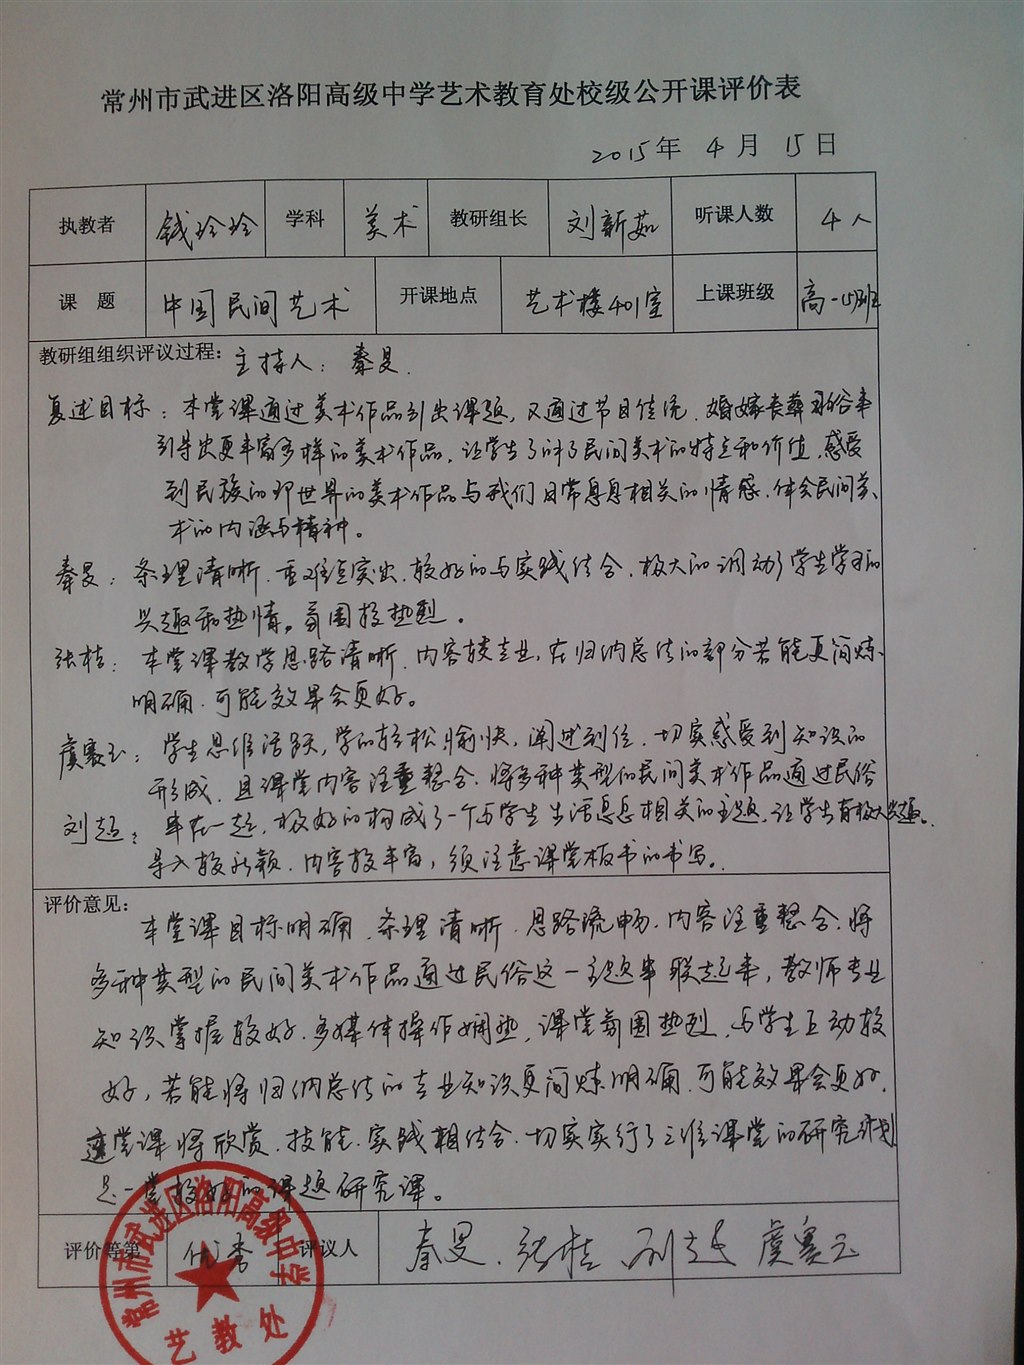 常州市武进区洛阳高级中学艺术教育处校级公开课评价表
2015年 4月 15日
执教者 钱玲玲 学科 美术 教研组长 刘新茹 听课人数 4人
课 题 中国民间艺术 开课地点 艺术楼401室 上课班级 高一(5)班
教研组组织评议过程: 主持人: 秦旻.
复述目标: 本堂课通过美术作品引出课题, 又通过节日佳境、婚嫁丧葬习俗来
引导出更丰富多样的美术作品, 让学生了解了民间美术的特点和价值, 感受
到民族的即世界的美术作品与我们日常息息相关的情感、体会民间美
术的内涵与精神。
秦旻: 条理清晰、重难点突出、较好的与实践结合、极大的调动了学生学习的
兴趣和热情。氛围较热烈。
张桔: 本堂课教学思路清晰、内容较专业, 在归纳总结的部分若能更简炼、
明确、可能效果会更好。
虞赛玉: 学生思维活跃, 学的轻松愉快, 阐述到位、切实感受到知识的
形成、且课堂内容注重整合、将多种类型的民间美术作品通过民俗
串在一起, 极好的构成了一个与学生生活息息相关的主题, 让学生有极大兴趣。
刘超: 导入较新颖、内容较丰富, 须注意课堂板书的书写。
评价意见:
本堂课目标明确、条理清晰、思路流畅、内容注重整合、将
多种类型的民间美术作品通过民俗这一主题串联起来, 教师专业
知识掌握较好、多媒体操作娴熟, 课堂氛围热烈, 与学生互动较
好, 若能将归纳总结的专业知识更简炼明确、可能效果会更好.
这堂课将欣赏、技能、实践相结合、切实实行了三维课堂的研究计划
是一堂较好的课题研究课。
评价等第 优秀 评议人 秦旻、张桔、刘超 虞赛玉
常州市武进区洛阳高级中学
艺教处